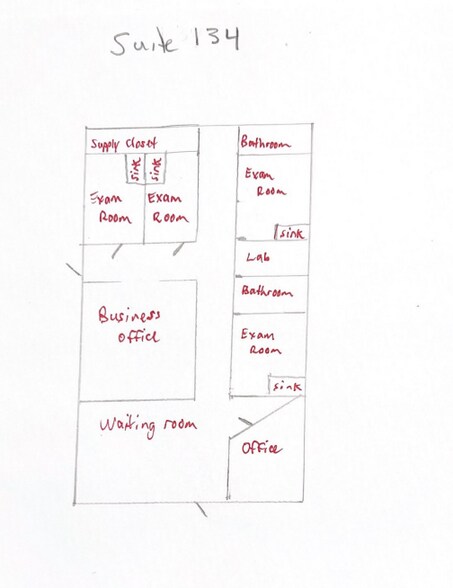 Suite 134
Supply Closet
Bathroom
sink
sink
Exam
Room
Exam
Room
Exam
Room
sink
Lab
Bathroom
Business
office
Exam
Room
sink
Waiting room
Office